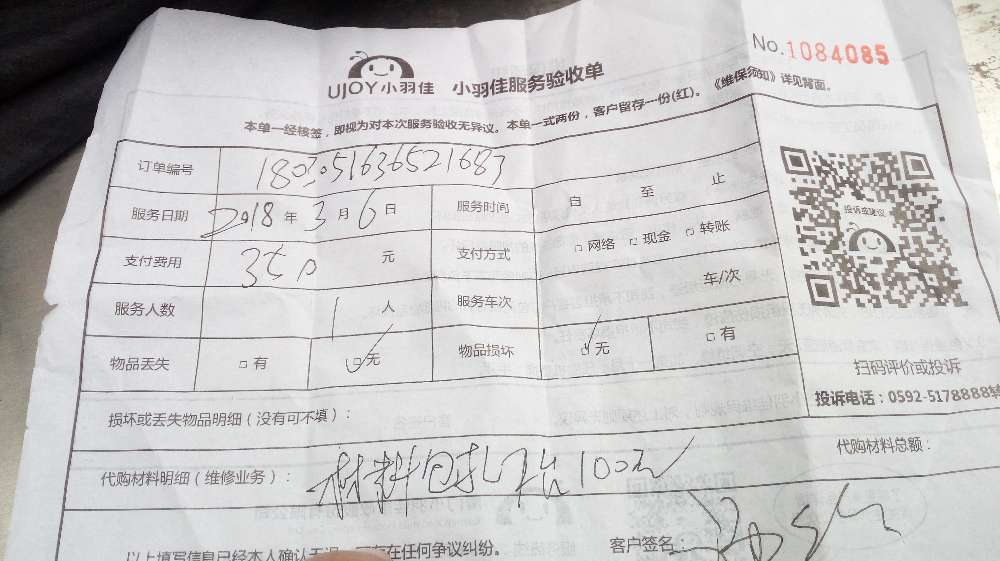 No.1084085
UJOY小羽佳 小羽佳服务验收单
本单一经核签，即视为对本次服务验收无异议。本单一式两份，客户留存一份(红)。《维保须知》详见背面。
订单编号 1803051636521683
服务日期 2018年3月6日 服务时间 自 至 止
支付费用 350元 支付方式 □网络 □现金 □转账
服务人数 1人 服务车次 车/次
物品丢失 □有 ☑无 物品损坏 ☑无 □有
投诉或建议
扫码评价或投诉
投诉电话：0592-5178888转
损坏或丢失物品明细（没有可不填）：
代购材料明细（维修业务）： 材料 100元 代购材料总额：
以上填写信息已经本人确认无误 在任何争议纠纷。 客户签名：